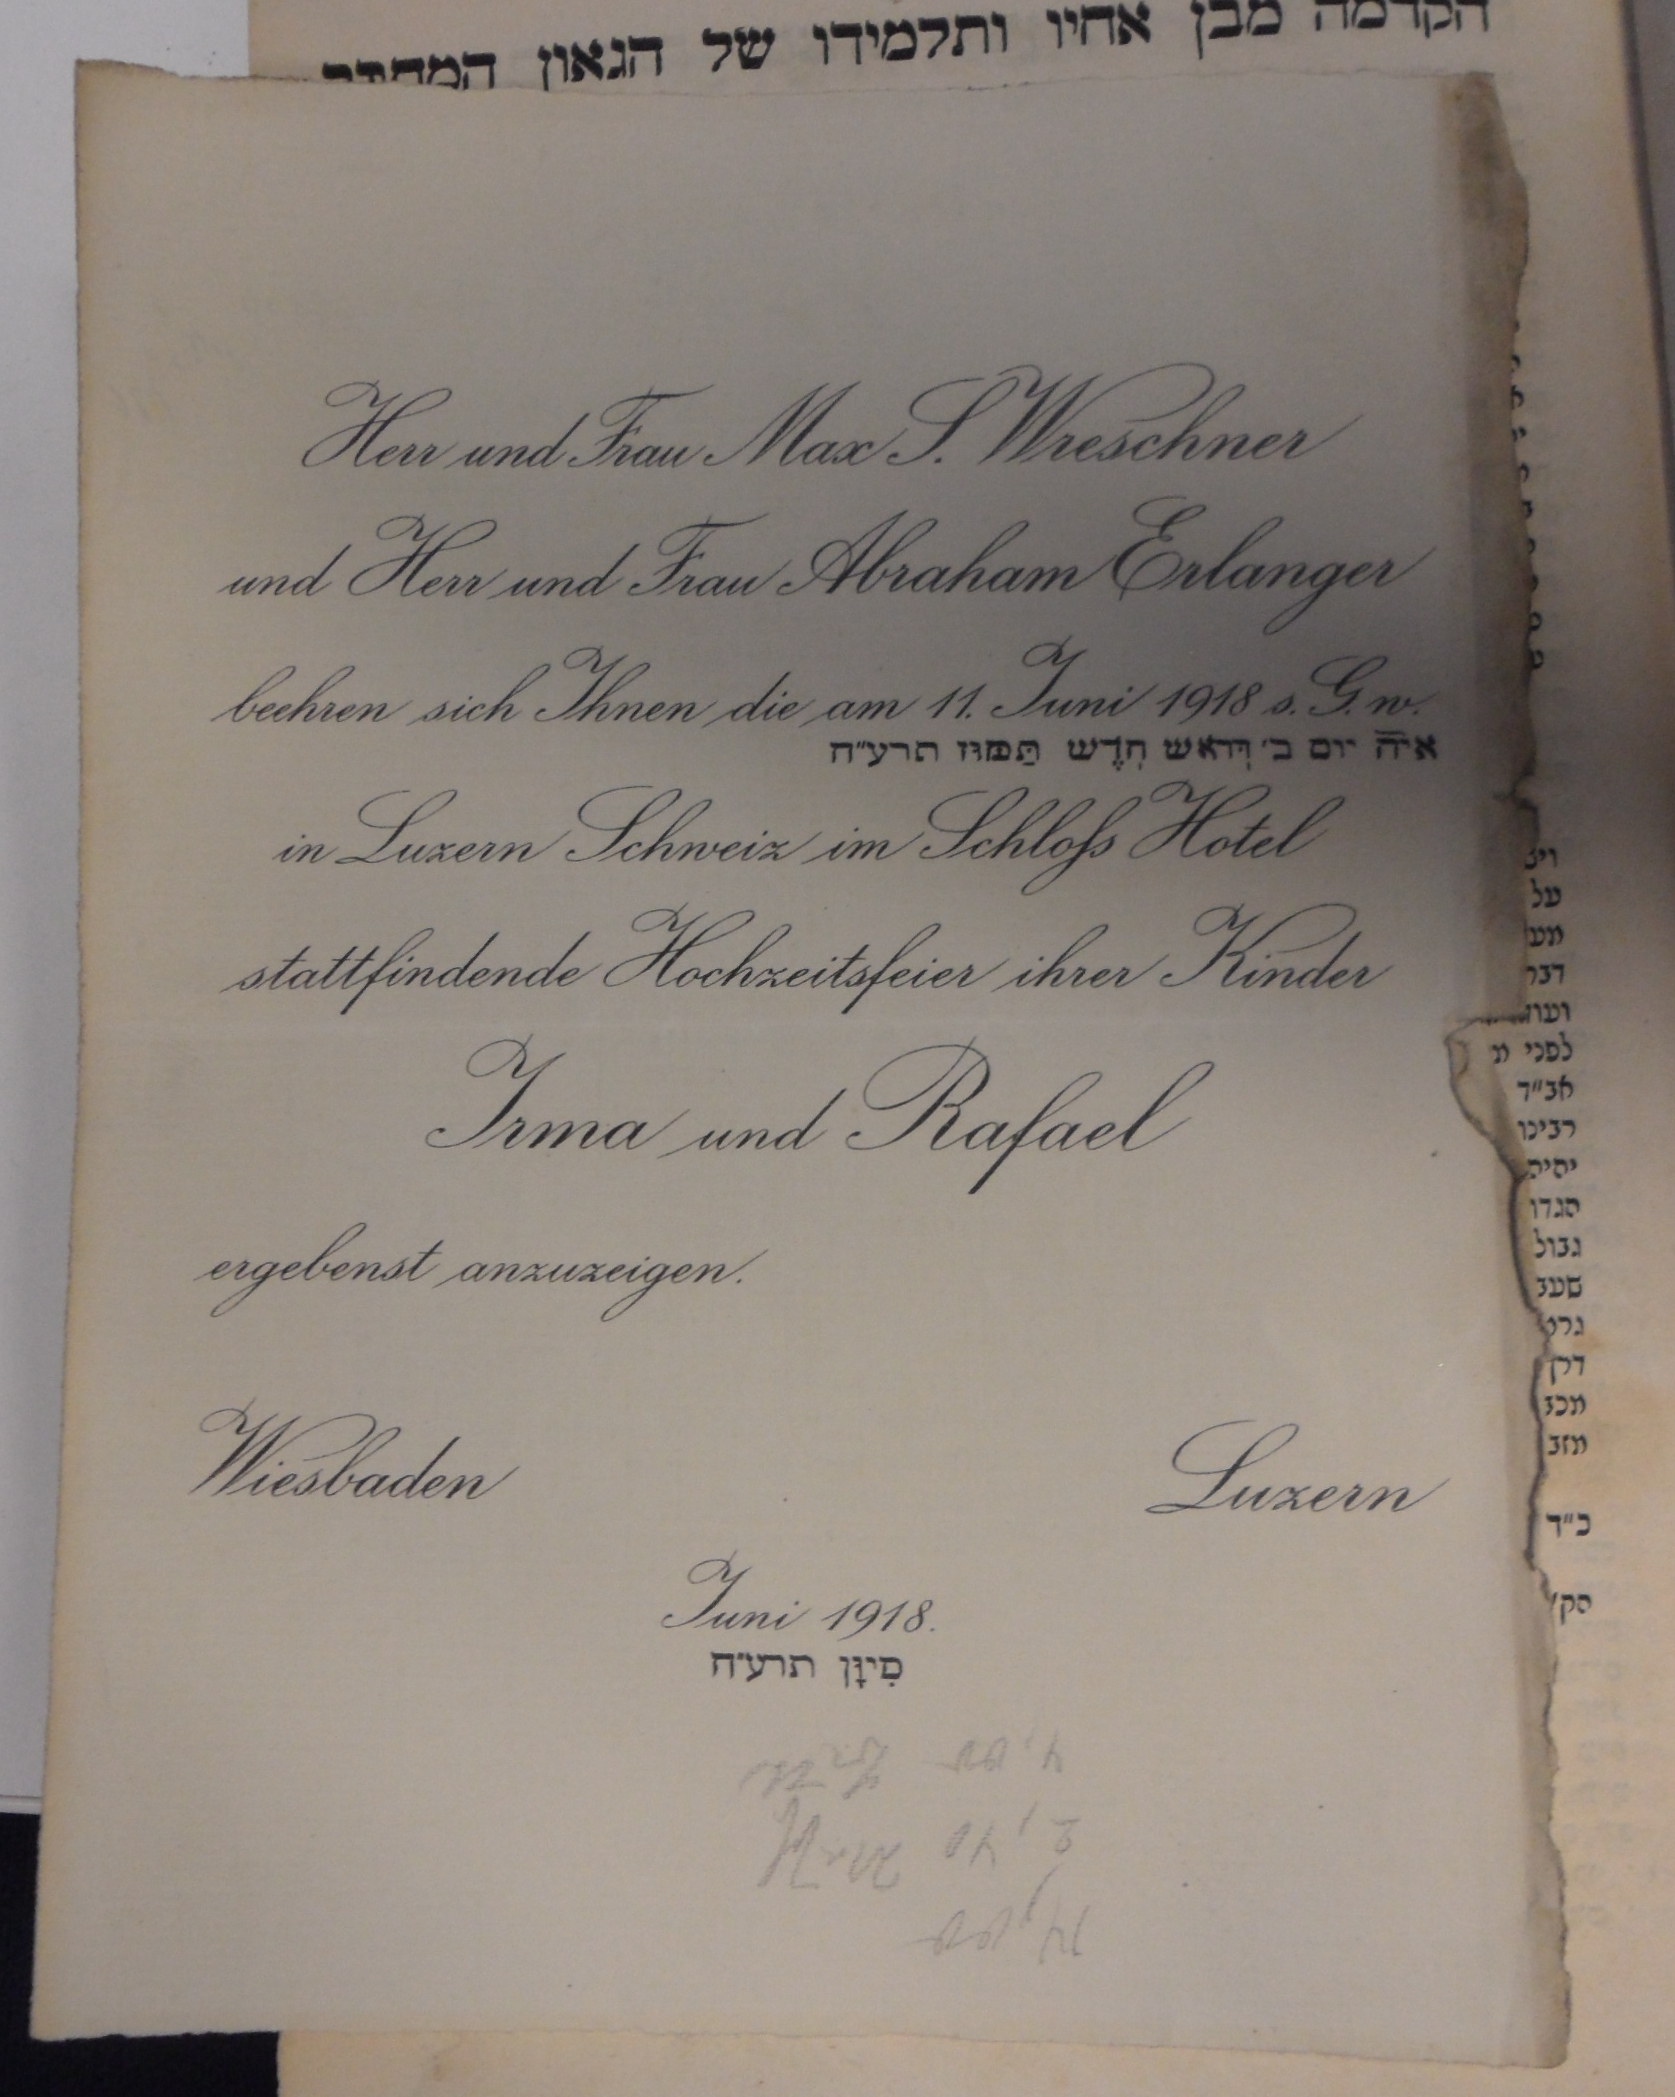 הקדמה מבן אחיו ותלמידו של הגאון המחבר
Herr und Frau Max S. Wreschner
und Herr und Frau Abraham Erlanger
beehren sich Ihnen die am 11. Juni 1918 s. G. w.
אי״ה יום ב׳ דְּראש חֹדֶש תַּמּוּז תרע״ח
in Luzern Schweiz im Schloſs Hotel
stattfindende Hochzeitsfeier ihrer Kinder
Irma und Rafael
ergebenst anzuzeigen.
Wiesbaden
Luzern
Juni 1918.
סִיוָּן תרע״ח
על
דבר
לפני
אב״ד
רבינו
גבול
כ״ד